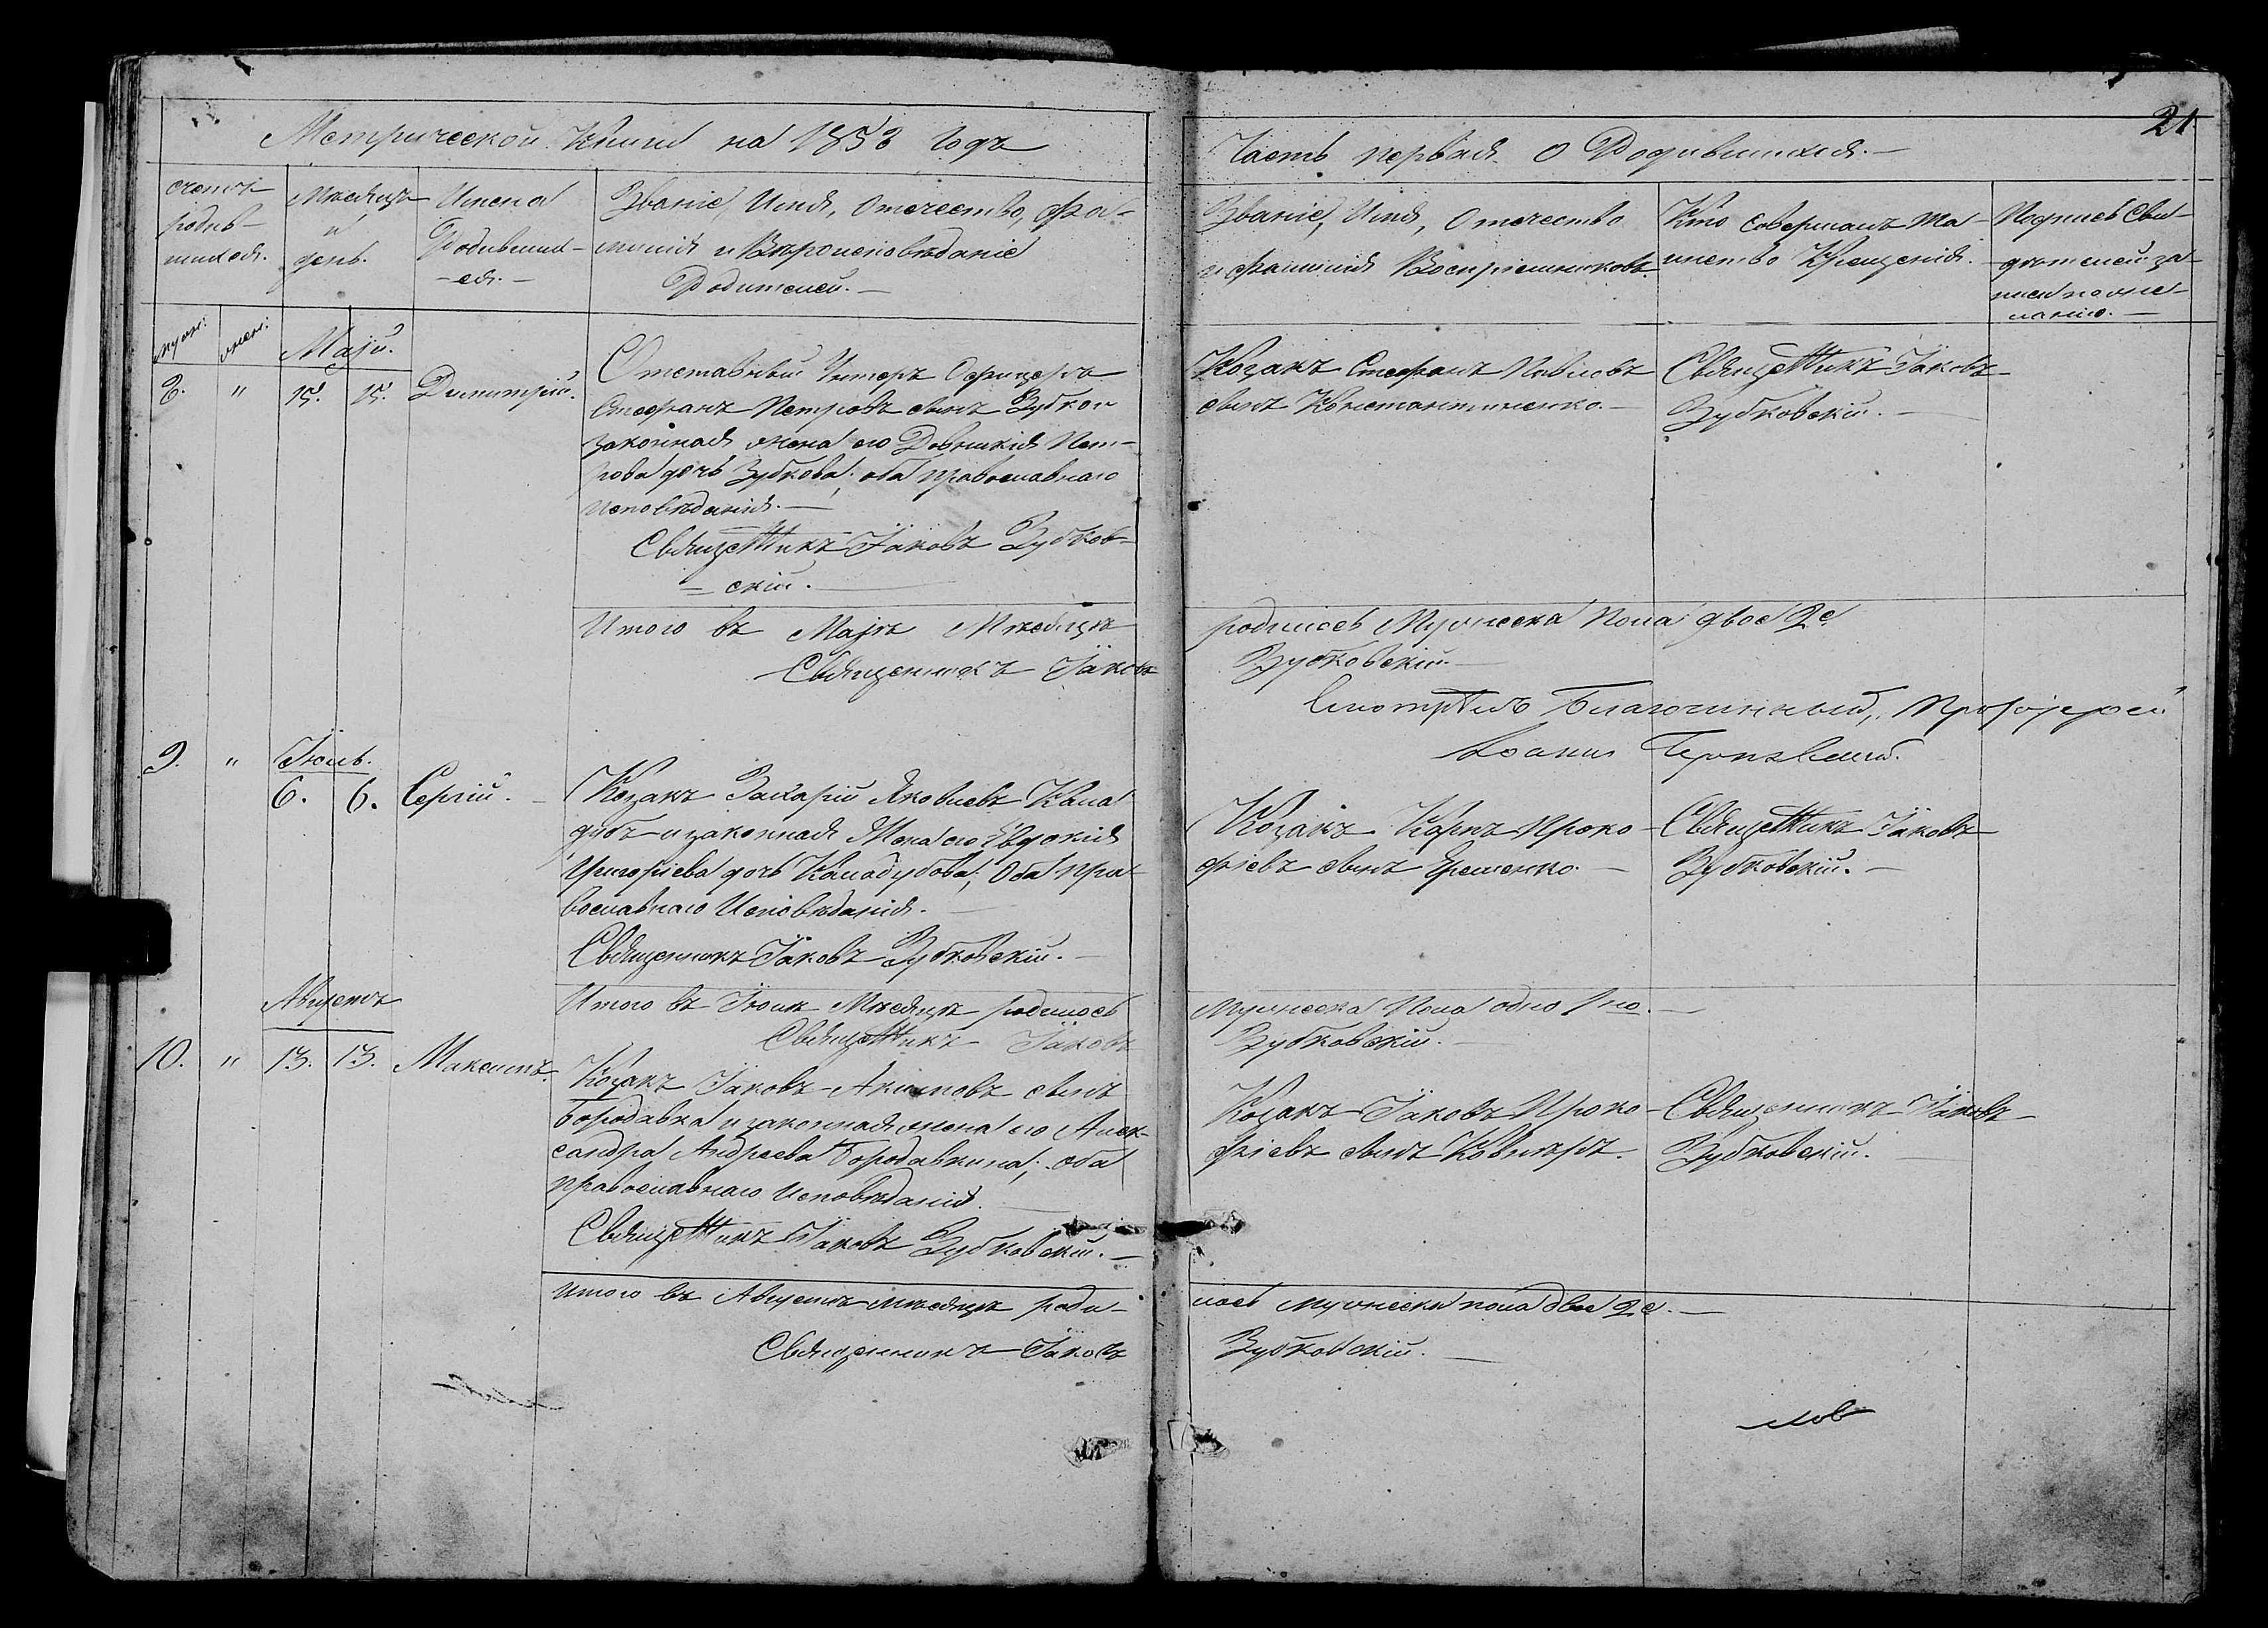 21
Метрической Книги на 1853 Годъ
Часть первая о Родившихся.—
счетъ родив-шихся.
Мѣсяцъ и день.
Имена Родивших-ся.—
Званіе, Имя, Отечество, Фа-
милія и Вѣроисповѣданіе
Родителей.—
Званіе, Имя, Отечество
и фамилія Воспріемниковъ.
Кто совершалъ Та-
инство Крещенія.
Подпись Сви-
дѣтелей за-
писи по же-
ланію.—
муж: жен:
Маій.
8. " 15. 15. Димитрій.
Отставный Унтеръ Офицеръ
Стефанъ Петровъ сынъ Зубков
законная жена его Пет-
рова дочь Зубкова; оба православнаго
исповѣданія.—
Священникъ Іаковъ Зубков-
скій.
Козакъ Стефанъ Павловъ
сынъ Константиненко.—
Священникъ Іаковъ
Зубковскій.—
Итого въ Маіѣ Мѣсяцѣ
родилось Мужеска Пола двое 2е
Священникъ Іаковъ
Зубковскій.—
Смотрѣлъ Благочинный, Протоіерей
Іоаннъ
Іюль.
9. " 6. 6. Сергій.—
Козакъ Захарій Яковлевъ Кала
дубъ и законная Жена его Евдокія
Григоріева дочь Каладубова; Оба пра
вославнаго Исповѣданія.—
Священникъ Іаковъ Зубковскій.—
Козакъ Карпъ Проко-
фіевъ сынъ Яременко.—
Священникъ Іаковъ
Зубковскій.—
Итого въ Іюлѣ Мѣсяцѣ родилось
Мужеска Пола одно 1но.—
Священникъ Іаковъ
Зубковскій.—
Августъ
10. " 13. 13. Максимъ.
Козакъ Іаковъ Акимовъ сынъ
Бородавка и законная жена его Алек-
сандра Андреева Бородавкина; оба
православнаго Исповѣданія.—
Священникъ Іаковъ Зубковскій.—
Козакъ Іаковъ Проко-
фіевъ сынъ
Священникъ Іаковъ
Зубковскій.
Итого въ Августѣ мѣсяцѣ роди-
лось мужеска пола двое 2е.—
Священникъ Іаковъ
Зубковскій.—